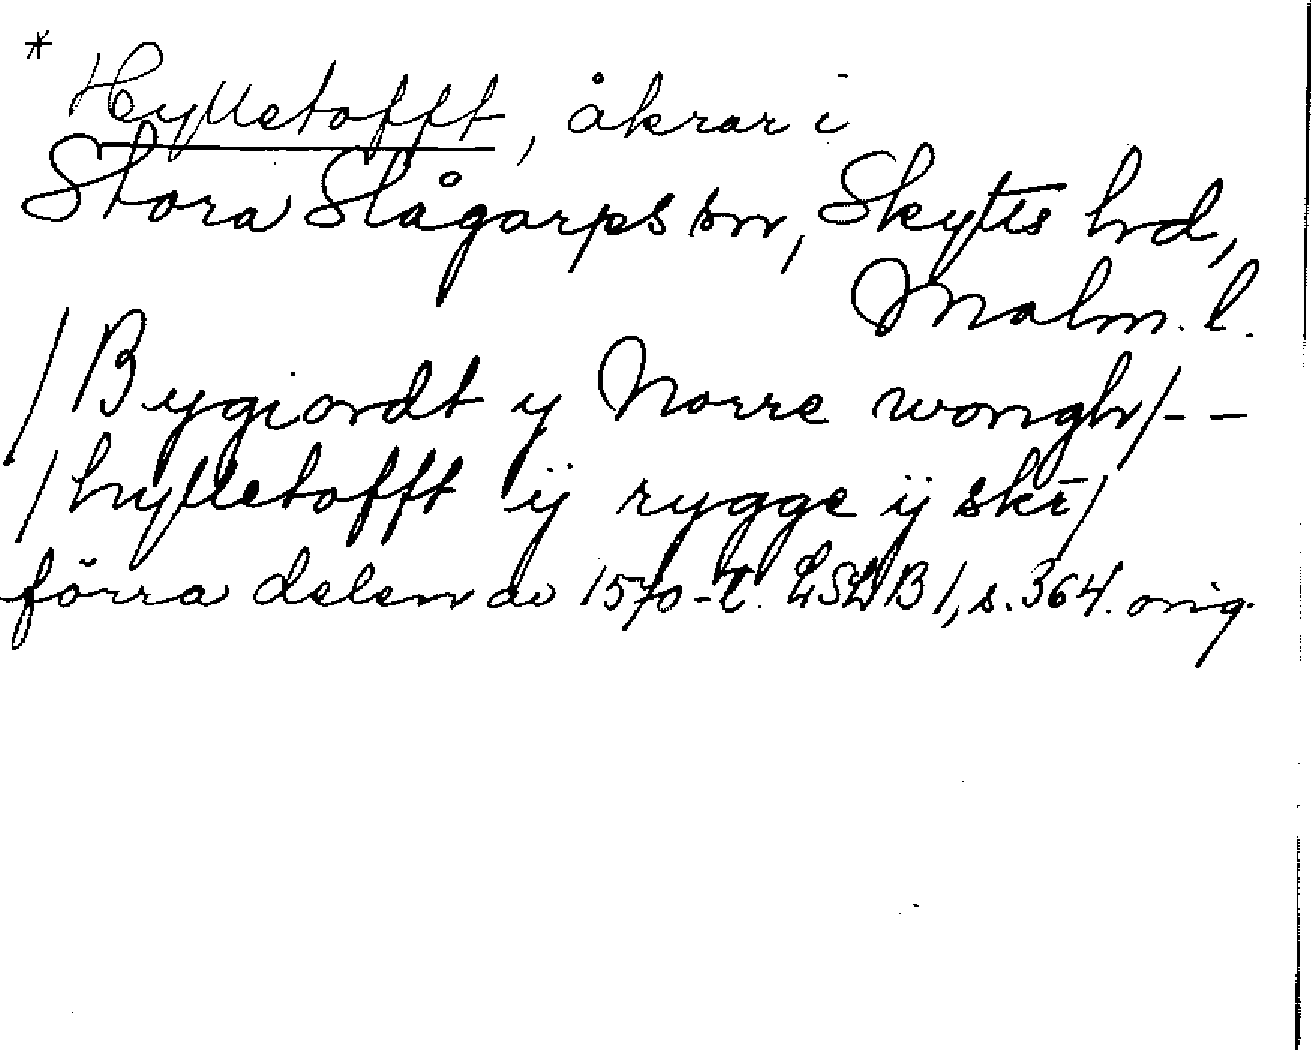 * Hylletofft, åkrar i
Stora Slågarps sn, Skytts hd,
Malm. l.
/Bygiordt y Norre wongh/--
/hylletofft ÿ rygge ÿ skı̄/
förra delen av 1570-t. LSLB 1, s. 364. orig.